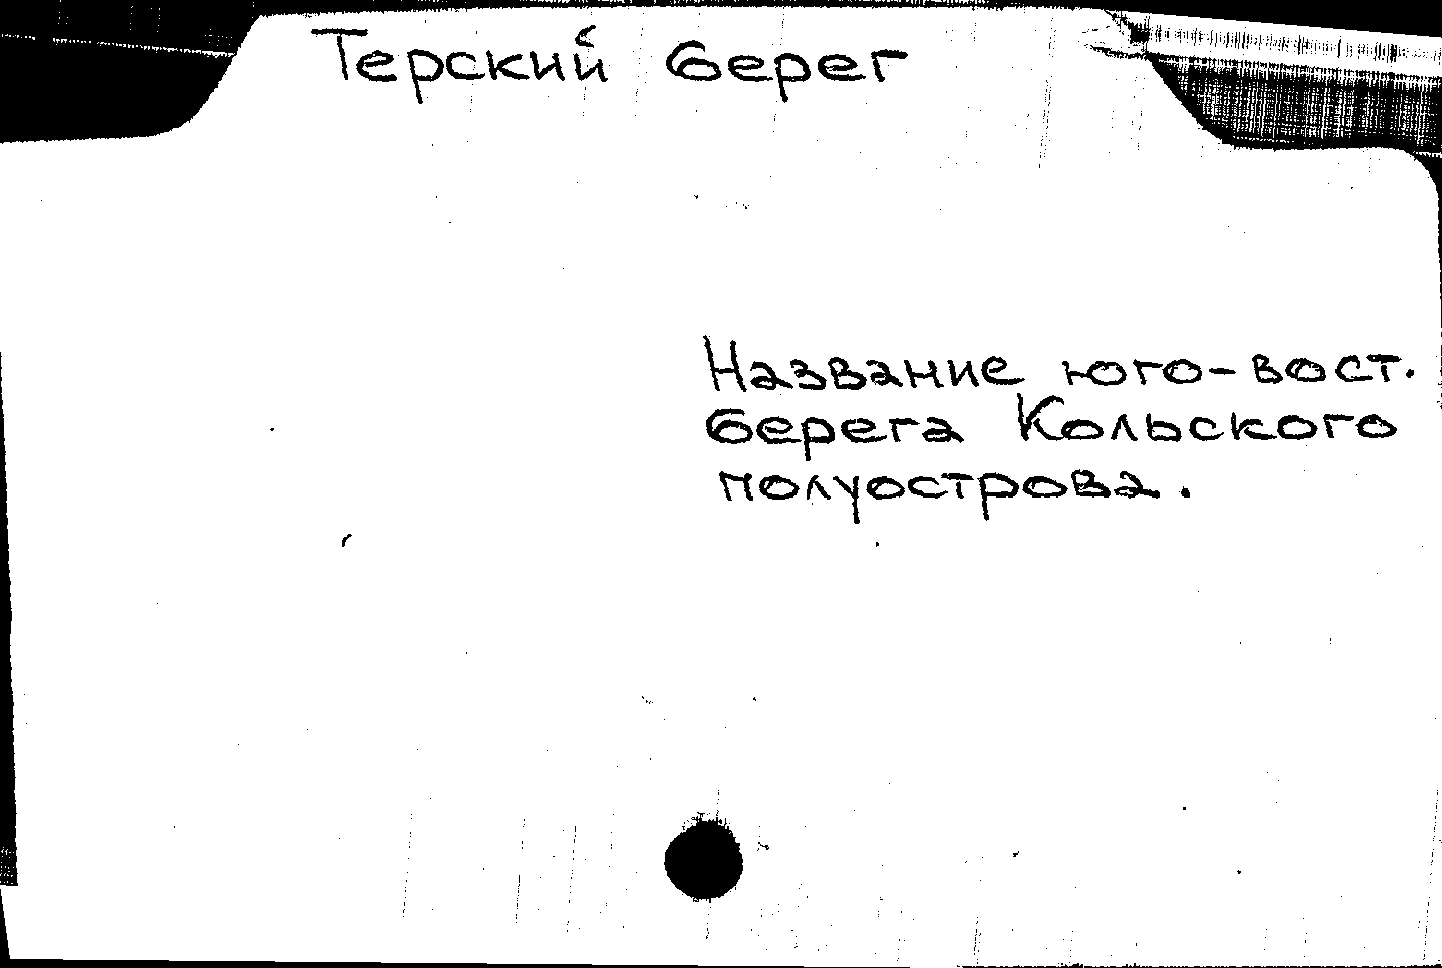 Терский берег
Название юго-вост.
берега Кольского
полуострова.